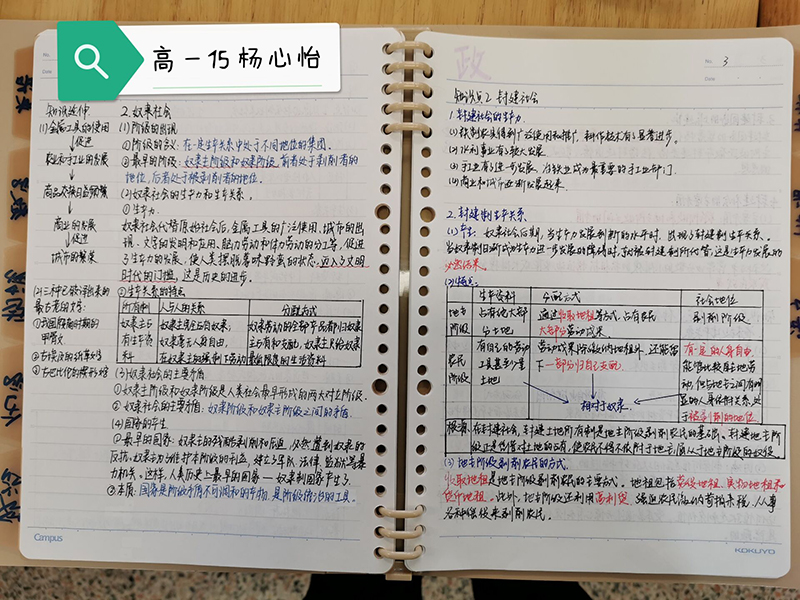 高一15 杨心怡
知识延伸
(1)金属工具的使用
↓促进
农业和手工业的发展
↓
商品交换日益频繁
↓
商业的发展
↓促进
城市的繁荣
(2)三种已被译出来的
最古老的文字:
①我国殷商时期的
甲骨文
②古埃及的
③古巴比伦的楔形文字
2.奴隶社会
(1)阶级的出现
①阶级的含义:在一定生产关系中处于不同地位的集团。
②最早的阶级:奴隶主阶级和奴隶阶级,前者处于剥削者的
地位,后者处于被剥削者的地位。
(2)奴隶社会的生产力和生产关系。
①生产力
奴隶社会代替原始社会后,金属工具的广泛使用、城市的出
现、文字的发明和应用、脑力劳动和体力劳动的分工等,促进
了生产力的发展,使人类摆脱蒙昧野蛮的状态,迈入了文明
时代的门槛,这是历史的进步。
②生产关系的特点
所有制 人与人的关系 分配方式
奴隶主占有生产资料
奴隶主完全占有奴隶,奴隶毫无人身自由,在奴隶主的强制下劳动
奴隶劳动的全部产品都归奴隶主占有和支配,奴隶主只给奴隶最低限度的生活资料
(3)奴隶社会的主要矛盾
①奴隶主阶级和奴隶阶级是人类社会最早形成的两大对立阶级。
②奴隶社会的主要矛盾:奴隶阶级和奴隶主阶级之间的矛盾。
(4)国家的产生
①最早的国家:奴隶主的残酷剥削和压迫,必然遭到奴隶的
反抗。奴隶主为维护本阶级的利益,建立了军队、法律、监狱等暴
力机关。这样,人类历史上最早的国家——奴隶制国家产生了
②本质:国家是阶级矛盾不可调和的产物,是阶级统治的工具。
Campus
政
No. 3
Date
知识点2 封建社会
1.封建社会的生产力
(1)铁制农具得到广泛使用和推广,耕作技术有了显著进步。
(2)水利事业有了较大发展
(3)手工业有了进一步发展,冶铁业成为最重要的手工业部门。
(4)商业和城市逐渐发展起来。
2.封建制生产关系
(1)产生:奴隶社会后期,当生产力发展到新的水平时,出现了封建制生产关系。
当奴隶制日渐成为生产力进一步发展的障碍时,就被封建制所代替,这是生产力发展的
必然结果。
(2)特点。
生产资料 分配方式 社会地位
地主阶级
占有绝大部分土地
通过收取地租等方式,占有农民大部分劳动成果
剥削阶级
农民阶级
有自己的劳动工具甚至少量土地
劳动成果除缴纳地租外,还能留下一部分归自己支配
有一定的人身自由,
相对于奴隶
根源:在封建社会,封建土地所有制是地主阶级剥削农民的基础。封建地主阶
级正是凭借对土地的占有,使农民不得不依附于地主,
(3)地主阶级剥削农民的方式。
收取地租是地主阶级剥削农民的主要方式。地租包括劳役地租、实物地租和
货币地租。此外,地主阶级还利用高利贷、强迫农民缴纳苛捐杂税、从事
各种徭役来剥削农民。
KOKUYO